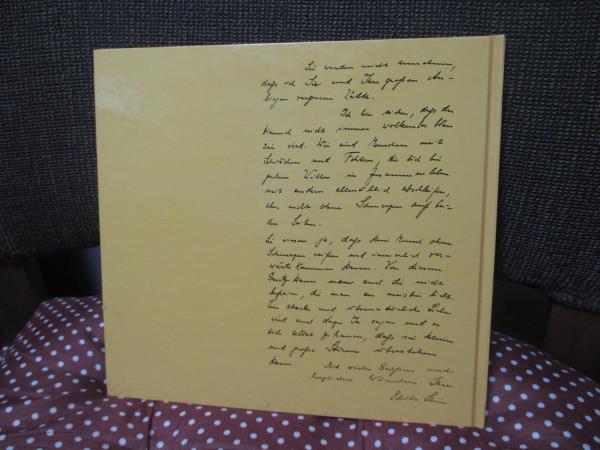 Sie werden nicht annehmen,
daß ich Sie und Ihr großes An-
liegen vergessen hätte.
Ich bin sicher, daß der
Himmel nicht immer wolkenlos blau
sein wird. Wir sind Menschen mit
Schwächen und Fehlern, die sich bei
gutem Willen im Zusammenleben
mit andern allmählich abschleifen,
aber nicht ohne Schmerzen auf bei-
den Seiten.
Sie wissen ja, daß kein Mensch ohne
Schmerzen reifen und innerlich vor-
wärts kommen kann. Von diesem
Gesetz kann man auch die nicht
befreien, die man am meisten liebt.
Ein starke und übernatürliche Liebe
wird auch dazu Ja sagen und es
sich selbst zutrauen, daß sie kleine
und große Stürme überstehen
kann. Mit vielen Grüßen und
herzlichen Wünschen Ihre
Edith Stein